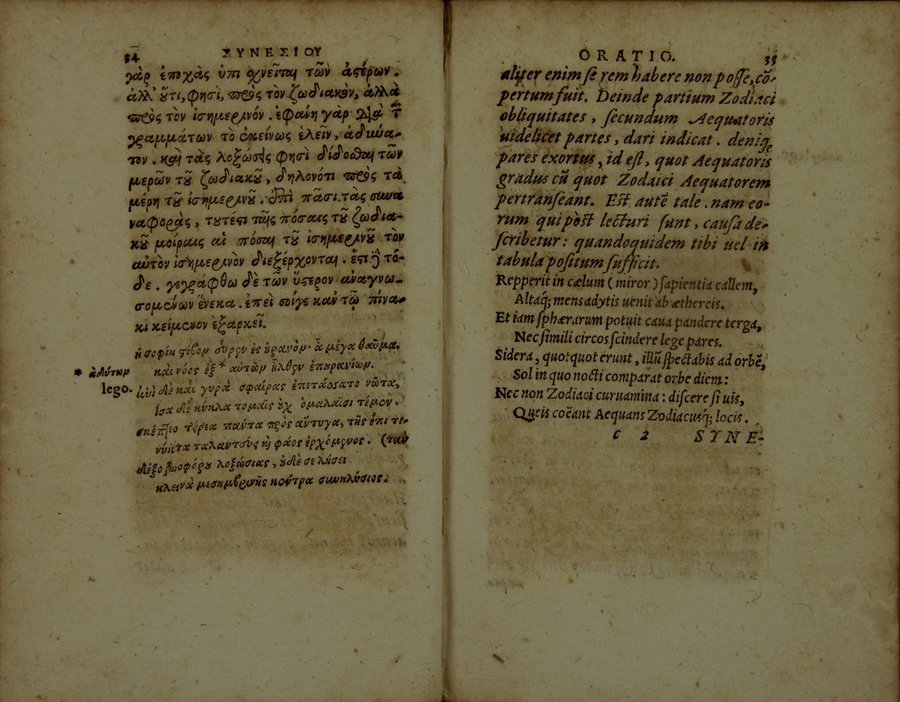 34 ΣΥΝΕΣΙΟΥ
γὰρ ἐποχὰς ὑπισχνεῖται τῶν ἀστέρων.
ἀλλ' οὔτι, φησὶ, πρὸς τὸν ζωδιακὸν, ἀλλὰ
πρὸς τὸν ἰσημερινόν. ἐφαίνη γὰρ διὰ τῶν
γραμμάτων τὸ ἐκείνως ἑλεῖν, ἀδύνα-
τον. καὶ τὰς λοξώσεις φησὶ δίδοσθαι τῶν
μερῶν τοῦ ζωδιακοῦ, δηλονότι πρὸς τὰ
μέρη τοῦ ἰσημερινοῦ. ἐπὶ πᾶσι τὰς συνα-
ναφορὰς, τουτέστι πόσαις τοῦ ζωδια-
κοῦ μοίραις αἱ πόσαι τοῦ ἰσημερινοῦ τὸν
αὐτὸν ἰσημερινὸν διεξέρχονται. ἔστι δὲ τό-
δε. γεγράφθω δὲ τῶν ὕστερον ἀναγνω-
σομένων ἕνεκα. ἐπεὶ σοίγε κἂν τῷ πίνα-
κι κείμενον ἐξαρκεῖ.
ἡ σοφίη στίβον εὗρεν ἐς οὐρανόν. ἆ μέγα θαῦμα.
καὶ νόος ἐξ * αὐτῶν ἦλθεν ἐπουρανίων.
* ἀδύτων
lego.
ἠνὶ δὲ καὶ γυρὰ σφαίρας ἐπετάσσατο νῶτα,
ἶσα δὲ κύκλα τομαῖς οὐχ ὁμαλαῖσι τέμεν.
σκέπτεο τείρεα πάντα πρὸς ἄντυγα, τῆς ἐπὶ τι-
νύκτα ταλαντεύει φάος ἐρχόμενος. (ταν
δέξο ζωοφόρου λοξώσιας, οὐδέ σε λήσει
κλεινὰ μεσημβρινῆς κέντρα συνηλύσιος.
ORATIO. 35
aliter enim se rem habere non posse, cō-
pertum fuit. Deinde partium Zodiaci
obliquitates, secundum Aequatoris
uidelicet partes, dari indicat. deniq;
pares exortus, id est, quot Aequatoris
gradus cū quot Zodaici Aequatorem
pertranseant. Est autē tale. nam eo-
rum qui pòst lecturi sunt, causa de-
scribetur: quandoquidem tibi uel in
tabula positum sufficit.
Repperit in cælum (miror) sapientia callem,
Altaq; mens adytis uenit ab æthereis.
Et iam sphærarum potuit caua pandere terga,
Nec simili circos scindere lege pares.
Sidera, quotquot erunt, illū spectabis ad orbē,
Sol in quo nocti comparat orbe diem:
Nec non Zodiaci curuamina: discere si uis,
Queis coëant Aequans Zodiacusq; locis.
c 2 SYNE-